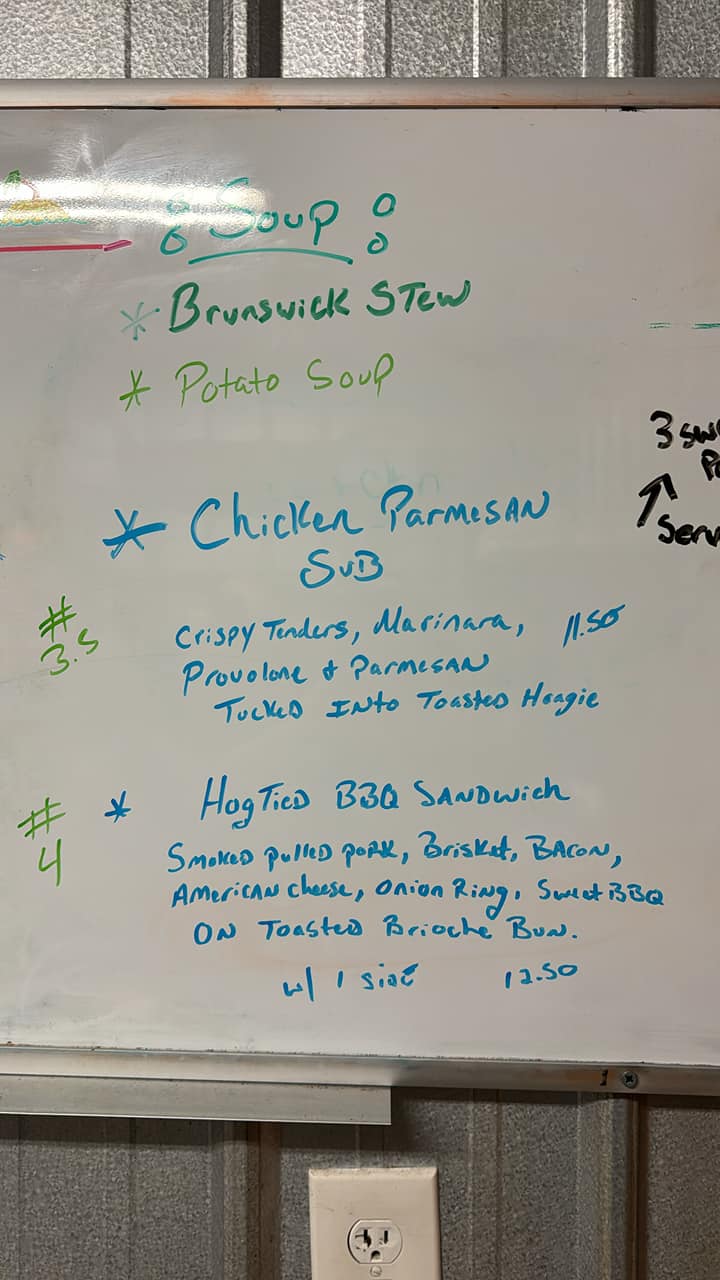 Soup
* Brunswick Stew
* Potato Soup
* Chicken Parmesan
Sub
# 3.5
Crispy Tenders, Marinara, 11.50
Provolone & Parmesan
Tucked Into Toasted Hoagie
# 4
* HogTied BBQ Sandwich
Smoked pulled pork, Brisket, Bacon,
American cheese, Onion Ring, Sweet BBQ
On Toasted Brioche Bun.
w/ 1 side 12.50
3